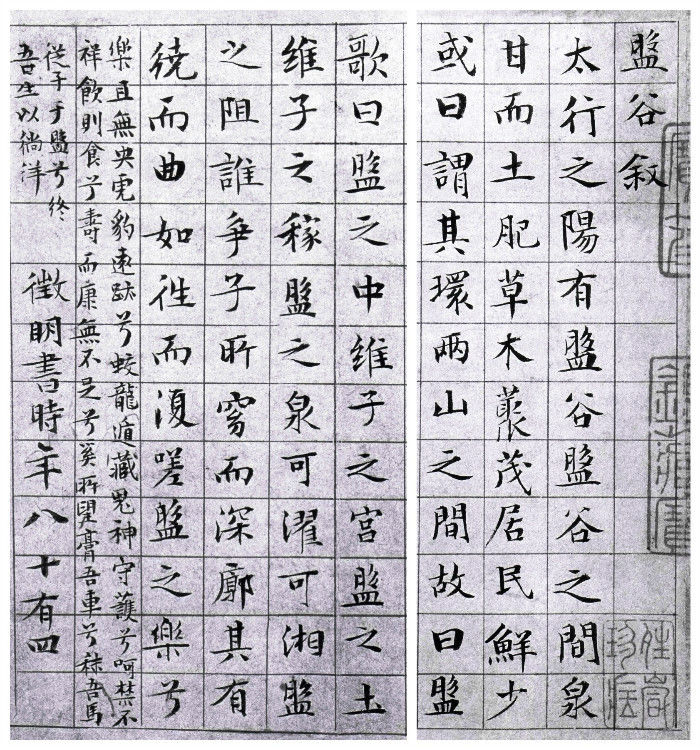 盤谷叙
太行之陽有盤谷盤谷之間泉
甘而土肥草木藂茂居民鮮少
或曰謂其環兩山之間故曰盤
歌曰盤之中維子之宮盤之土
維子之稼盤之泉可濯可湘盤
之阻誰爭子所窈而深廓其有
繞而曲如往而復嗟盤之樂兮
樂且無央虎豹遠跡兮蛟龍遁藏鬼神守護兮呵禁不
祥飲則食兮壽而康無不足兮奚所望膏吾車兮秣吾馬
從子于盤兮終
吾生以徜徉
徵明書時年八十有四